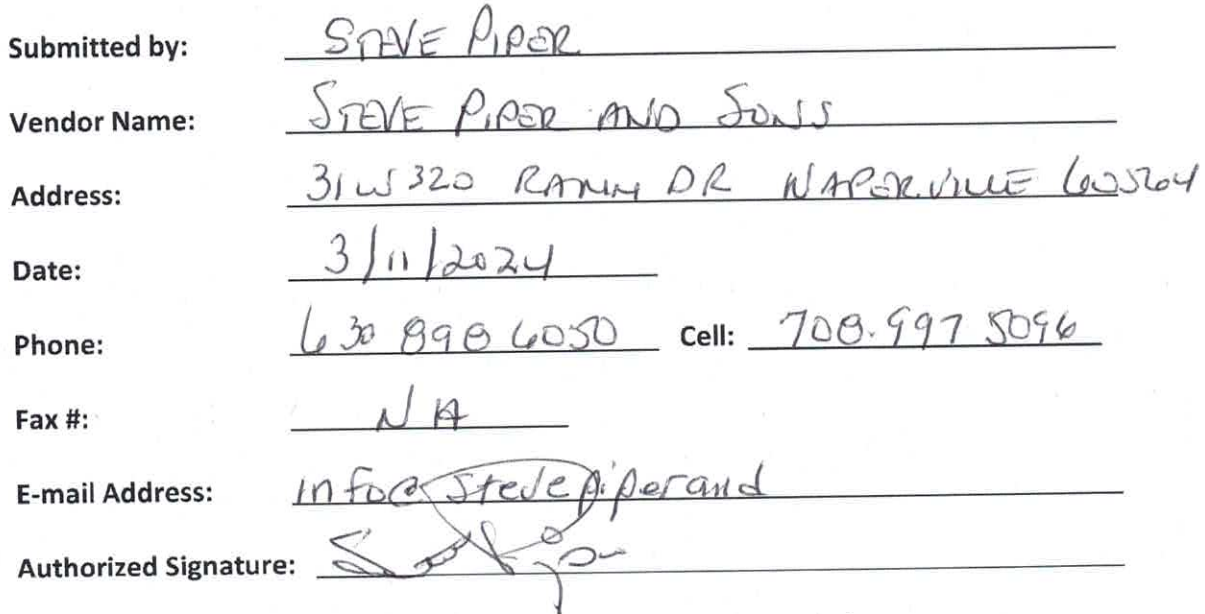 Submitted by: STEVE PIPER
Vendor Name: STEVE PIPER AND SONS
Address: 31W320 RAMM DR NAPERVILLE 60564
Date: 3/11/2024
Phone: 630 898 6050 Cell: 708.997 5096
Fax #: NA
E-mail Address: info@stevepiperand
Authorized Signature: